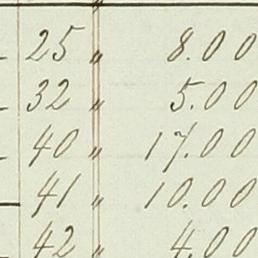 25 " 8.00
32 " 5.00
40 " 17.00
41 " 10.00
42 " 4.00